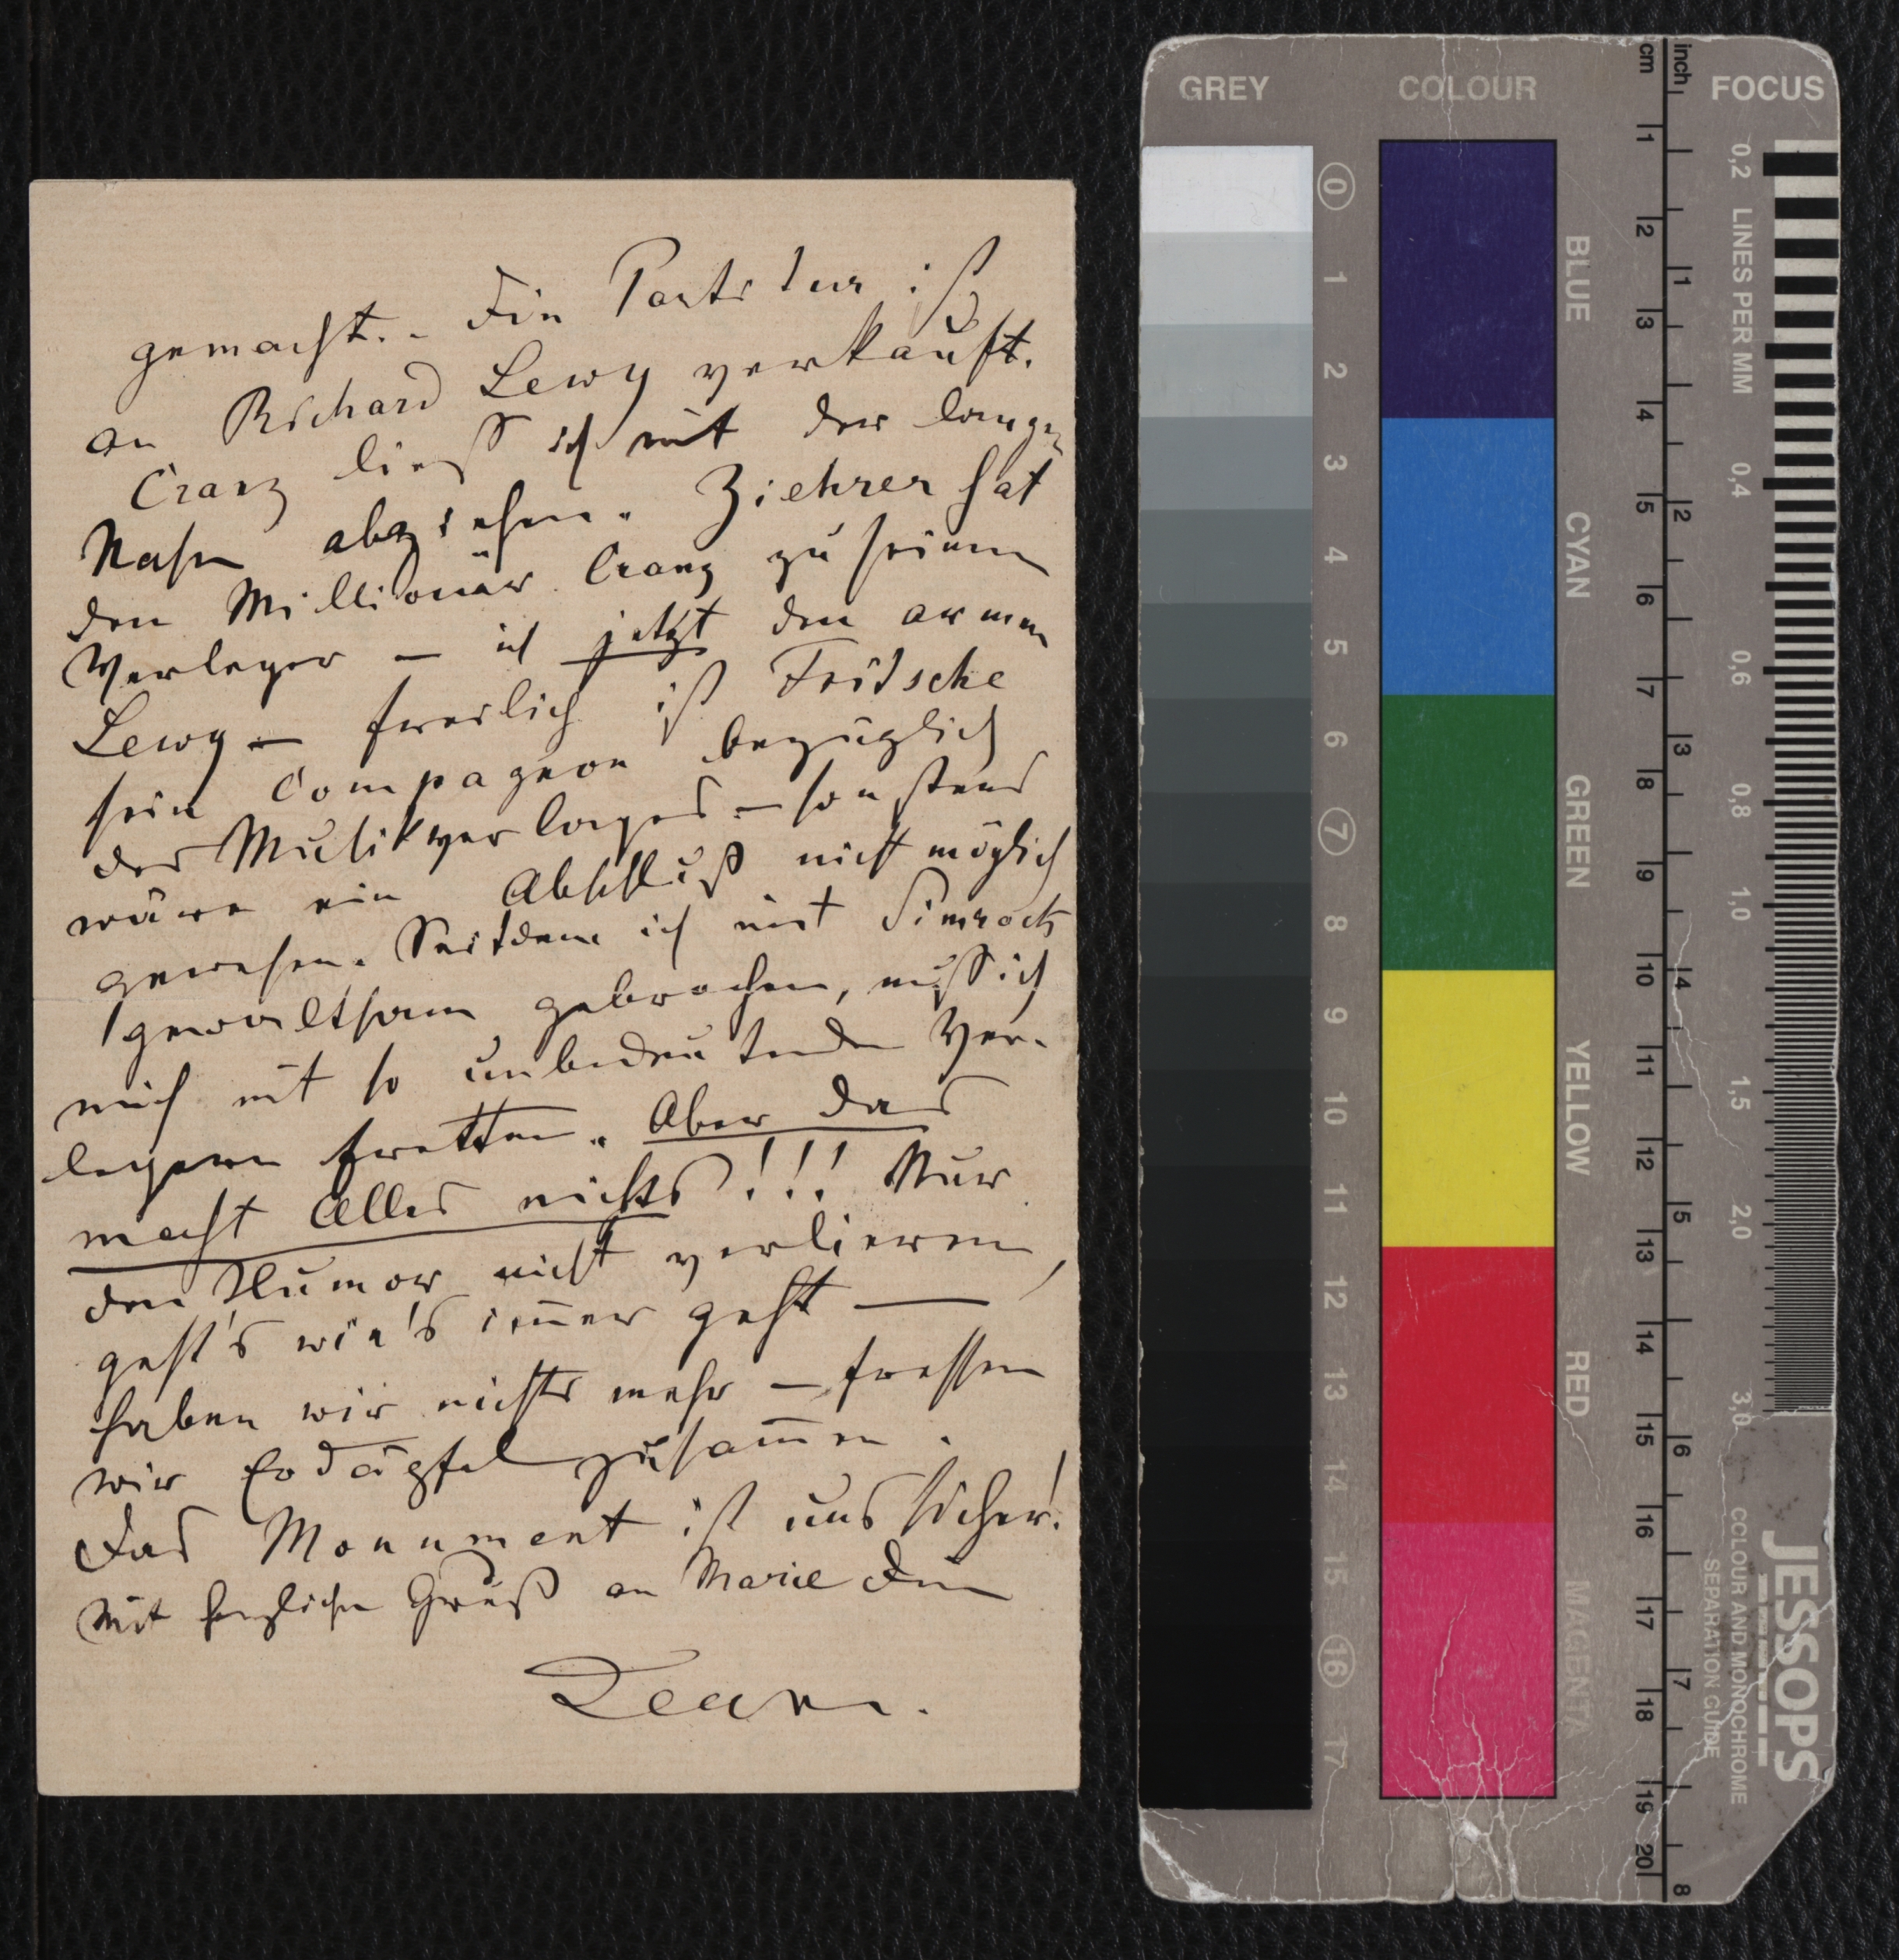 gemacht. – Die Partitur ist
an Richard Lewy verkauft.
Cranz ließ ich mit der langen
Nase abziehen. Ziehrer hat
den Millionär Cranz zu seinem
Verleger – ich jetzt den armen
Lewy – freilich ist Fritsche
sein Compagnon bezüglich
des Musikverlages – sonstens
wäre ein Abschluß nicht möglich
gewesen. Seitdem ich mit Simrock
gewaltsam gebrochen, muß ich
mich mit so unbedeutenden Ver-
legern fretten. Aber das
macht Alles nichts!!! Nur
den Humor nicht verlieren,
geht's wie's im̄er geht —
haben wir nichts mehr – fressen
wir Erdäpfel zusam̄en.
Das Monument ist uns sicher!
Mit herzlichen Gruß an Marie Dein
Jean.
GREY
COLOUR
FOCUS
0
1
2
3
4
5
6
7
8
9
10
11
12
13
14
15
16
17
BLUE
CYAN
GREEN
YELLOW
RED
MAGENTA
cm
1
2
3
4
5
6
7
8
9
10
11
12
13
14
15
16
17
18
19
20
inch
1
2
3
4
5
6
7
8
0,2 LINES PER MM
0,4
0,6
0,8
1,0
1,5
2,0
3,0
JESSOPS
COLOUR AND MONOCHROME
SEPARATION GUIDE